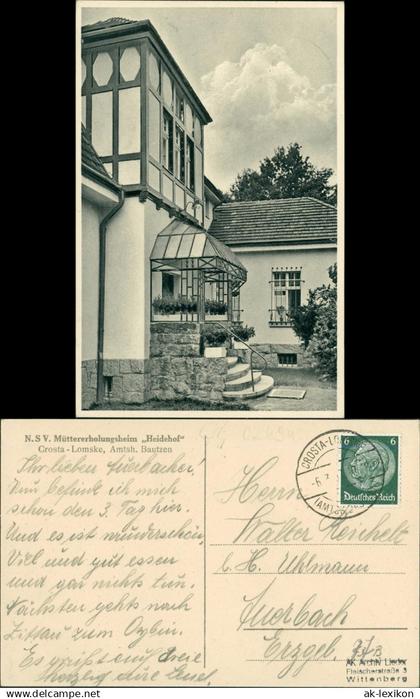 N.S.V. Müttererholungsheim „Heidehof"
Crosta-Lomske, Amtsh. Bautzen
Ihr lieben Auerbacher!
Nun befinde ich mich
schon den 3. Tag hier.
Und es ist wunderschön,
Viel und gut essen
und gar nichts tun.
Nächsten gehts nach
Zittau zum Oybin.
Es grüßt euch
herzlich eure
Herrn
Walter Reichelt
b. H. Uhlmann
Auerbach
Erzgeb.
CROSTA-LO
-6.
(AMTSH.
6 6
Deutsches Reich
AK Archiv Lieder
Fleischerstraße 3
Wittenberg
ak-lexikon.com